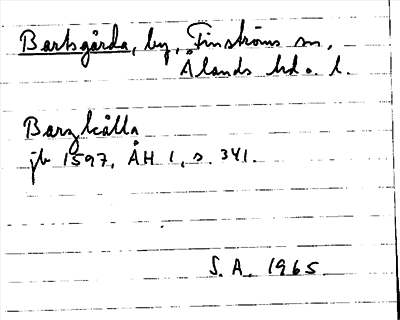 Bartsgårda, by, Finströms sn,
Ålands hd o. l.
Barzkålla
jb 1597, ÅH 1, s. 341.
S. A. 1965